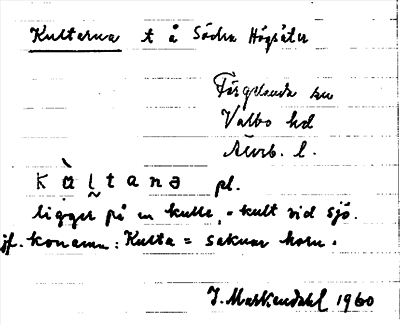 Kultarna t å Södra Högsäter
Färgelanda sn
Valbo hd
Älvb. l.
kùltana pl.
ligger på en kulle, - kult vid sjö.
jf. konamn: Kulta = saknar horn.
J. Markendahl 1960